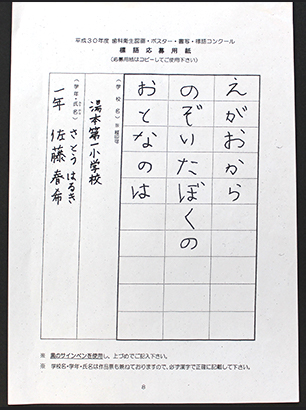 平成30年度 歯科衛生図画・ポスター・書写・標語コンクール
標語応募用紙
(応募用紙はコピーしてご使用下さい)
えがおから
のぞいたぼくの
おとなのは
(学校名)※楷書
湯本第一小学校
(学年・氏名)
さとう はるき
一年 佐藤 春希
※ 黒のサインペンを使用し、上づめでご記入下さい。
※ 学校名・学年・氏名は作品票も兼ねておりますので、必ず漢字で正確に記載して下さい。
8